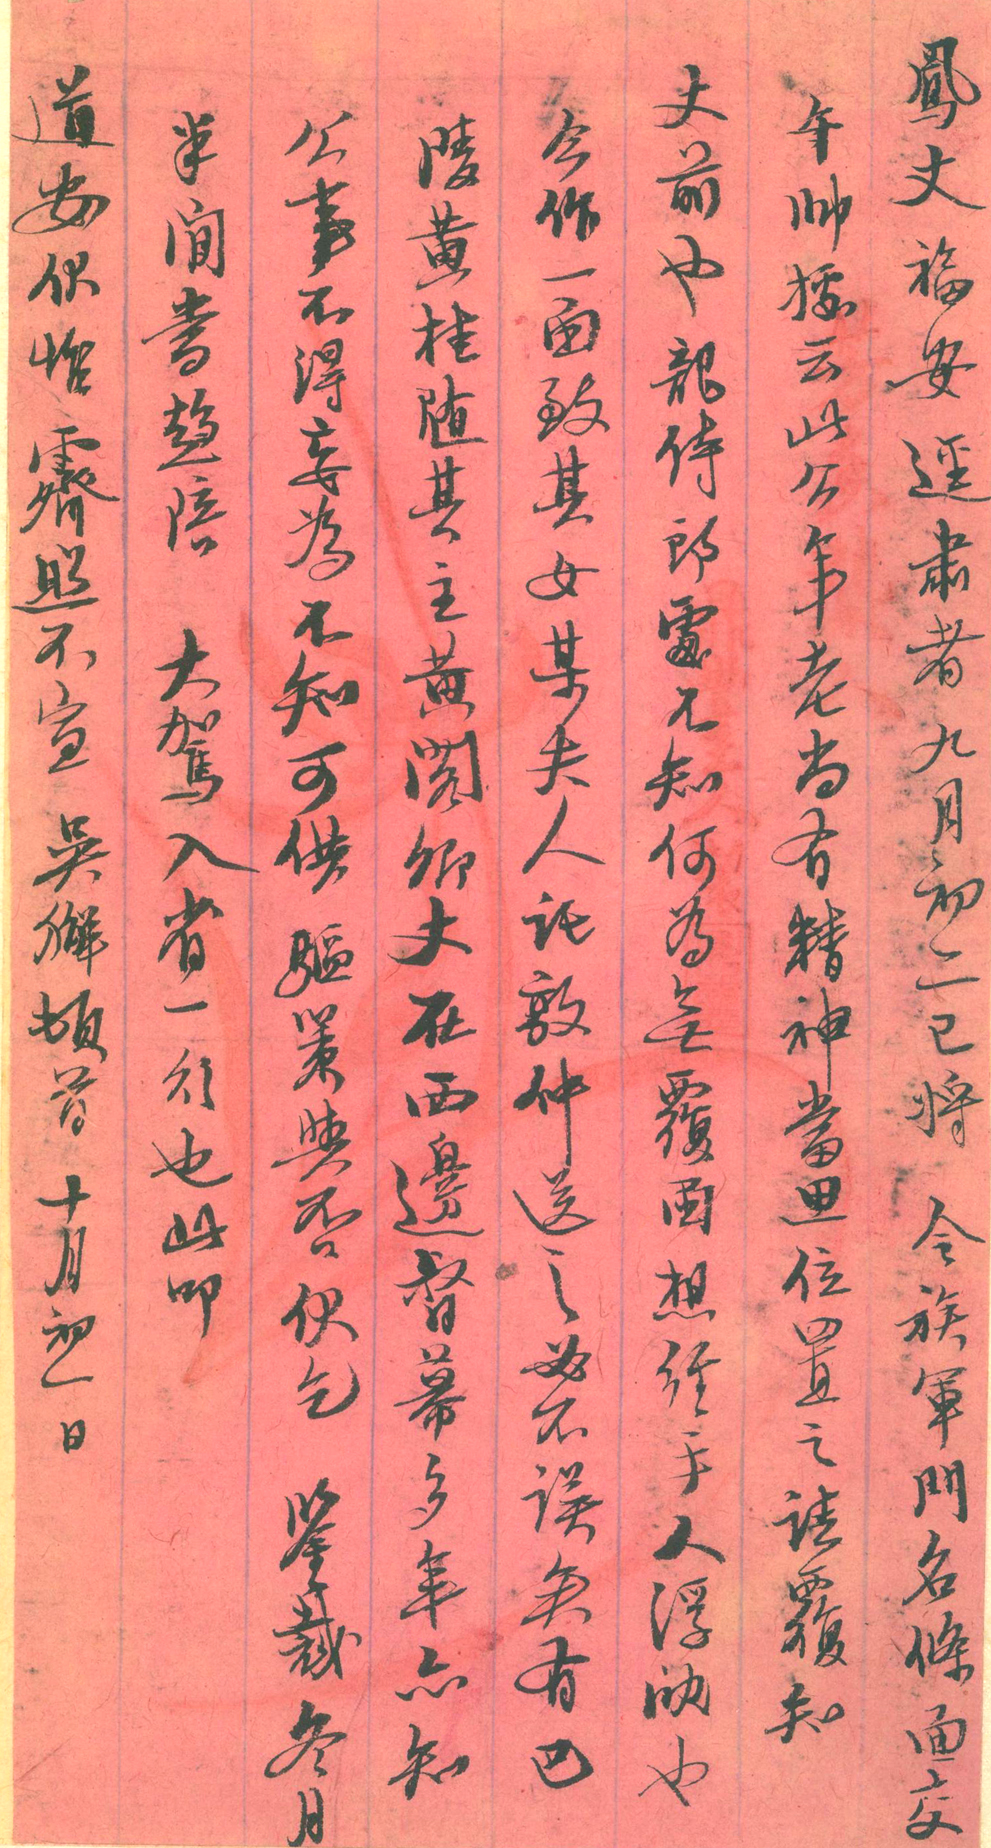 鳳丈福安逕肅者九月初二已將　令族軍門名條面交
午帥據云此公年老尚有精神當思位置之請覆知
丈前也龍侍郎處不知何為無覆函想經手人浮沈也
今作一函致其女某夫人託敦仲送之必不誤矣有巴
陵黃桂随其主黃闓卿丈在西邊督幕多年亦知
公事不得妄為不知可供驅策與否伏乞　鑒裁冬月
半間當趨陪　大駕入省一行也此叩
道安伏惟霽照不宣　吳獬頓首十月初一日